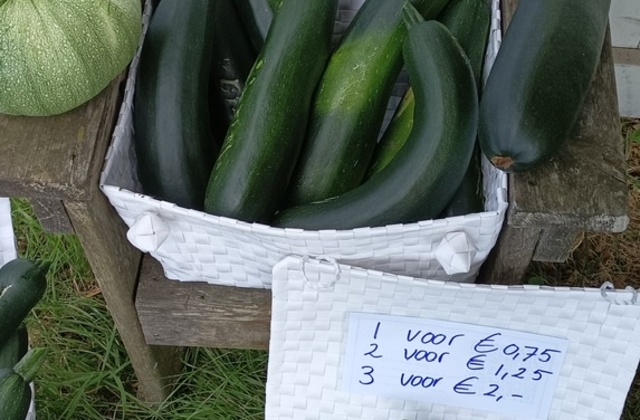 1 voor € 0,75
2 voor € 1,25
3 voor € 2,-